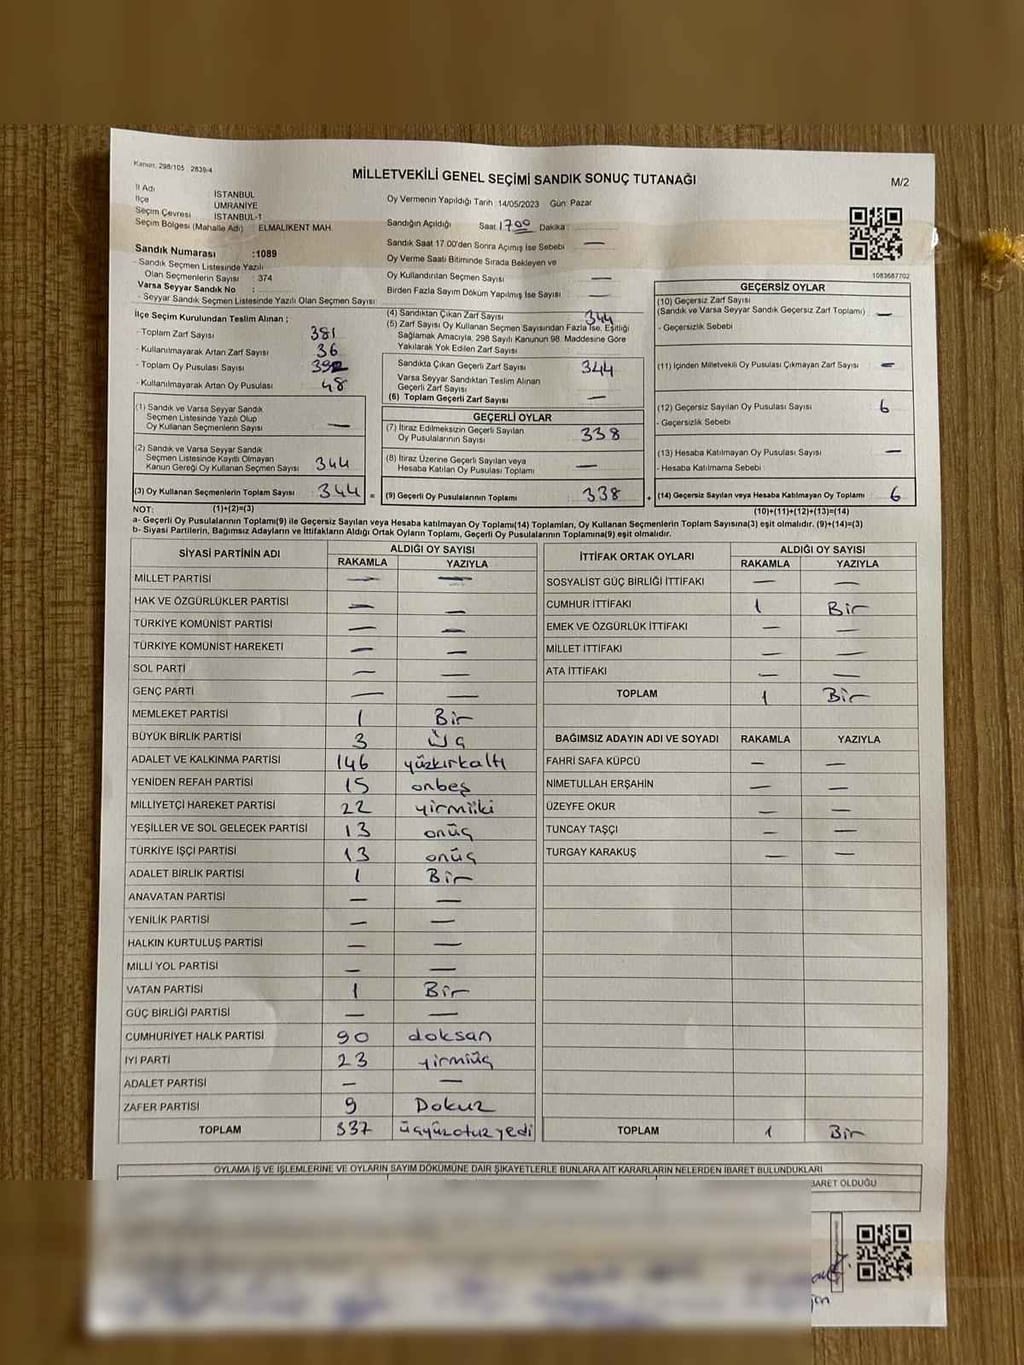 Kanun: 298/105 2839/4
MİLLETVEKİLİ GENEL SEÇİMİ SANDIK SONUÇ TUTANAĞI
M/2
İl Adı İSTANBUL
İlçe ÜMRANİYE
Seçim Çevresi İSTANBUL-1
Seçim Bölgesi (Mahalle Adı) : ELMALIKENT MAH.
Oy Vermenin Yapıldığı Tarih :14/05/2023 Gün: Pazar
Sandığın Açıldığı Saat 17:00 Dakika :
Sandık Saat 17.00'den Sonra Açımış İse Sebebi —
Oy Verme Saati Bitiminde Sırada Bekleyen ve
Oy Kullandırılan Seçmen Sayısı —
Birden Fazla Sayım Döküm Yapılmış İse Sayısı —
Sandık Numarası :1089
- Sandık Seçmen Listesinde Yazılı
Olan Seçmenlerin Sayısı : 374
Varsa Seyyar Sandık No :
- Seyyar Sandık Seçmen Listesinde Yazılı Olan Seçmen Sayısı:
1083687702
İlçe Seçim Kurulundan Teslim Alınan ;
- Toplam Zarf Sayısı 381
- Kullanılmayarak Artan Zarf Sayısı 36
- Toplam Oy Pusulası Sayısı 392
- Kullanılmayarak Artan Oy Pusulası 48
(1) Sandık ve Varsa Seyyar Sandık
Seçmen Listesinde Yazılı Olup
Oy Kullanan Seçmenlerin Sayısı —
(2) Sandık ve Varsa Seyyar Sandık
Seçmen Listesinde Kayıtlı Olmayan
Kanun Gereği Oy Kullanan Seçmen Sayısı 344
(3) Oy Kullanan Seçmenlerin Toplam Sayısı 344 =
(1)+(2)=(3)
(4) Sandıktan Çıkan Zarf Sayısı 344
(5) Zarf Sayısı Oy Kullanan Seçmen Sayısından Fazla İse, Eşitliği
Sağlamak Amacıyla, 298 Sayılı Kanunun 98. Maddesine Göre
Yakılarak Yok Edilen Zarf Sayısı
Sandıkta Çıkan Geçerli Zarf Sayısı 344
Varsa Seyyar Sandıktan Teslim Alınan
Geçerli Zarf Sayısı
(6) Toplam Geçerli Zarf Sayısı —
GEÇERLİ OYLAR
(7) İtiraz Edilmeksizin Geçerli Sayılan
Oy Pusulalarının Sayısı 338
(8) İtiraz Üzerine Geçerli Sayılan veya
Hesaba Katılan Oy Pusulası Toplamı —
(9) Geçerli Oy Pusulalarının Toplamı 338 +
GEÇERSİZ OYLAR
(10) Geçersiz Zarf Sayısı
(Sandık ve Varsa Seyyar Sandık Geçersiz Zarf Toplamı) —
- Geçersizlik Sebebi
(11) İçinden Milletvekili Oy Pusulası Çıkmayan Zarf Sayısı —
(12) Geçersiz Sayılan Oy Pusulası Sayısı 6
- Geçersizlik Sebebi
(13) Hesaba Katılmayan Oy Pusulası Sayısı —
- Hesaba Katılmama Sebebi :
(14) Geçersiz Sayılan veya Hesaba Katılmayan Oy Toplamı 6
(10)+(11)+(12)+(13)=(14)
NOT:
a- Geçerli Oy Pusulalarının Toplamı(9) ile Geçersiz Sayılan veya Hesaba katılmayan Oy Toplamı(14) Toplamları, Oy Kullanan Seçmenlerin Toplam Sayısına(3) eşit olmalıdır. (9)+(14)=(3)
b- Siyasi Partilerin, Bağımsız Adayların ve İttifakların Aldığı Ortak Oyların Toplamı, Geçerli Oy Pusulalarının Toplamına(9) eşit olmalıdır.
SİYASİ PARTİNİN ADI ALDIĞI OY SAYISI
RAKAMLA YAZIYLA
MİLLET PARTİSİ — —
HAK VE ÖZGÜRLÜKLER PARTİSİ — —
TÜRKİYE KOMÜNİST PARTİSİ — —
TÜRKİYE KOMÜNİST HAREKETİ — —
SOL PARTİ — —
GENÇ PARTİ — —
MEMLEKET PARTİSİ 1 Bir
BÜYÜK BİRLİK PARTİSİ 3 Üç
ADALET VE KALKINMA PARTİSİ 146 yüzkırkaltı
YENİDEN REFAH PARTİSİ 15 onbeş
MİLLİYETÇİ HAREKET PARTİSİ 22 yirmiiki
YEŞİLLER VE SOL GELECEK PARTİSİ 13 onüç
TÜRKİYE İŞÇİ PARTİSİ 13 onüç
ADALET BİRLİK PARTİSİ 1 Bir
ANAVATAN PARTİSİ — —
YENİLİK PARTİSİ — —
HALKIN KURTULUŞ PARTİSİ — —
MİLLİ YOL PARTİSİ — —
VATAN PARTİSİ 1 Bir
GÜÇ BİRLİĞİ PARTİSİ — —
CUMHURİYET HALK PARTİSİ 90 doksan
İYİ PARTİ 23 yirmiüç
ADALET PARTİSİ — —
ZAFER PARTİSİ 9 Dokuz
TOPLAM 337 üçyüzotuzyedi
İTTİFAK ORTAK OYLARI ALDIĞI OY SAYISI
RAKAMLA YAZIYLA
SOSYALİST GÜÇ BİRLİĞİ İTTİFAKI — —
CUMHUR İTTİFAKI 1 Bir
EMEK VE ÖZGÜRLÜK İTTİFAKI — —
MİLLET İTTİFAKI — —
ATA İTTİFAKI — —
TOPLAM 1 Bir
BAĞIMSIZ ADAYIN ADI VE SOYADI RAKAMLA YAZIYLA
FAHRİ SAFA KÜPCÜ — —
NİMETULLAH ERŞAHİN — —
ÜZEYFE OKUR — —
TUNCAY TAŞÇI — —
TURGAY KARAKUŞ — —
TOPLAM 1 Bir
OYLAMA İŞ VE İŞLEMLERİNE VE OYLARIN SAYIM DÖKÜMÜNE DAİR ŞİKAYETLERLE BUNLARA AİT KARARLARIN NELERDEN İBARET BULUNDUKLARI
BARET OLDUĞU